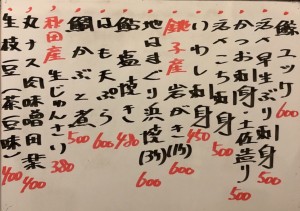 鯨ユッケ 600
活〆早生ぶり刺身 500
かつお刺身土佐造り 500
活〆こち刺身 500
いわし刺身 450
銚子産岩がき(1ケ) 600
地はまぐり浜焼(3ケ) 600
鮎塩焼 480
はも天ぷら 600
鯛かぶと煮 500
秋田産生じゅんさい 380
丸ナス肉味噌田楽 400
生枝豆(茶豆味) 400